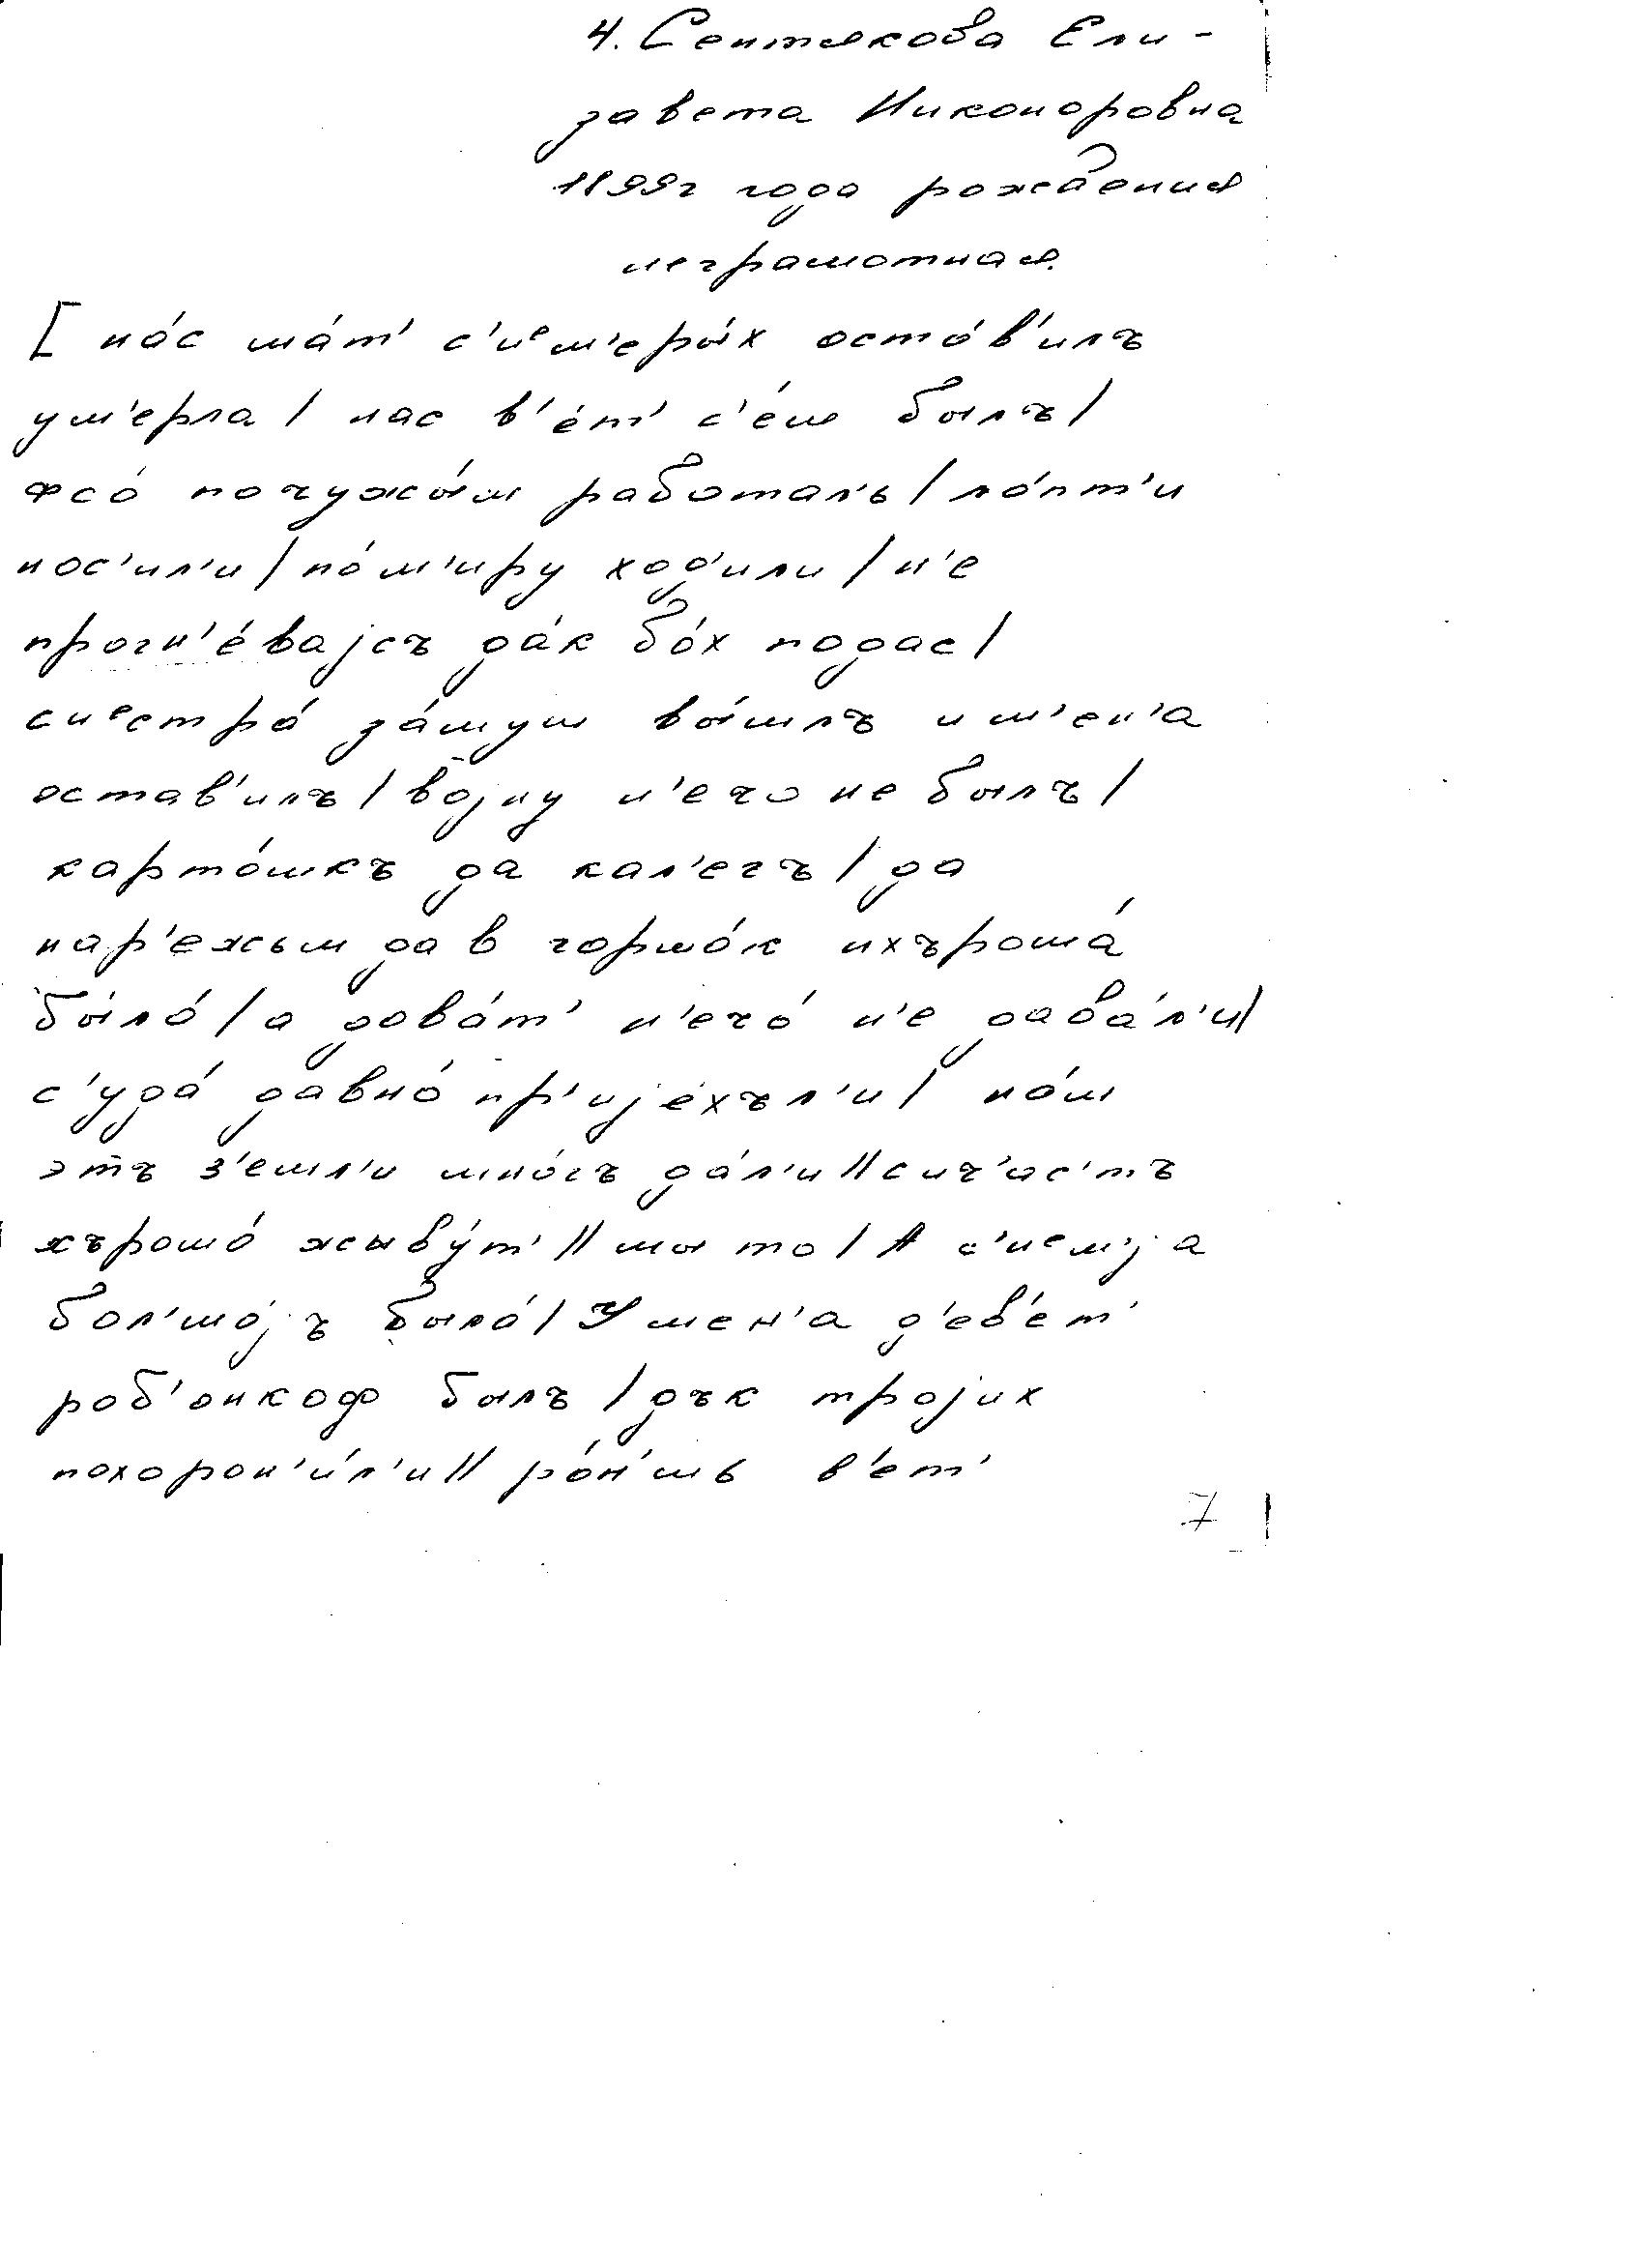 4. Сентякова Ели-
завета Никоноровна
1899г года рождения
неграмотная.
[ на́с ма́т' с'иᵉм'еры́х оста́в'илъ
ум'ерла / нас в'е́т' с'е́м былъ /
фсо́ почужы́м работал'ь / ло́пт'и
нос'ил'и / по́м'иру ход'или / н'е
прогн'е́вајсъ да́к бо́х подас /
сиᵉстра́ за́муш вы́шлъ и м'ен'а
остав'илъ / војну н'ечо не былъ /
карто́шкъ да кал'егъ / да
нар'ежым да в горшо́к ихърошá
бы́ло́ / а дова́т' н'ечо́ н'е дава́л'и /
с'уда́ давно́ пр'ије́хъл'и / на́м
этъ з'емл'и мно́гъ да́л'и // сич'ас'тъ
хърошо́ жыву́т' // мы то / А с'иᵉм'ја
бол'шо́јъ было́ / У мен'а д'ев'е́т'
роб'онкоф былъ / дък тројих
похорон'и́л'и // ро́н'шь в'ет'
7